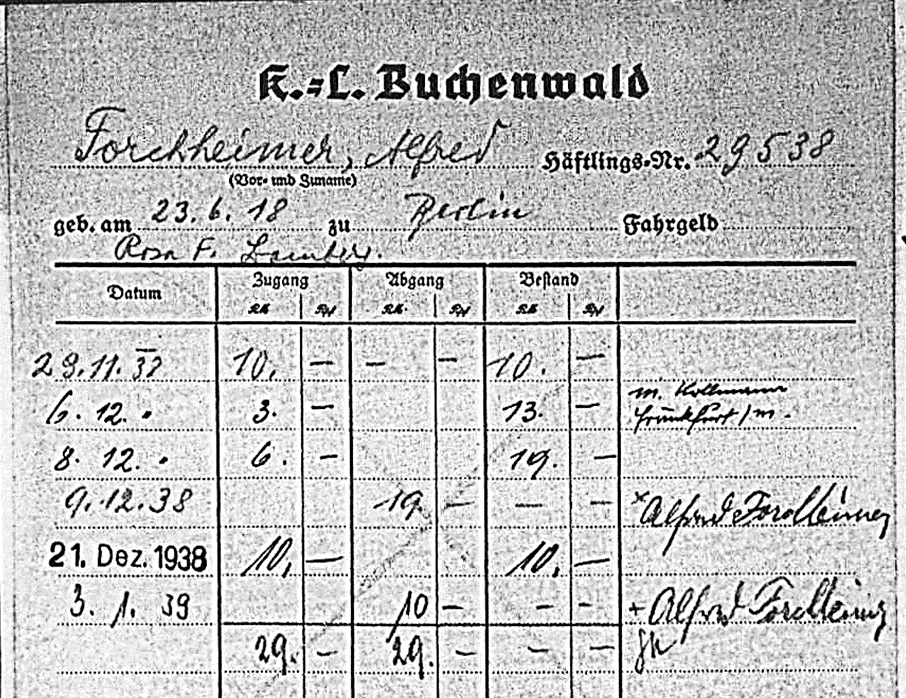 K.=L. Buchenwald
Forchheimer, Alfred Häftlings-Nr. 29538
(Vor- und Zuname)
geb. am 23.6.18 zu Berlin Fahrgeld
Rosa F.
Datum Zugang Abgang Bestand
RM Rpf RM Rpf RM Rpf
29.11. 10. — — — 10. —
6. 12. " 3. — 13. — m. Kollmann
Frankfurt/m.
8. 12. " 6. — 19. —
9.12.38 19 — — — × Alfred Forchheimer
21. Dez. 1938 10, — 10, —
3. 1. 39 10 — — — + Alfred Forchheimer
29. — 29. — — —